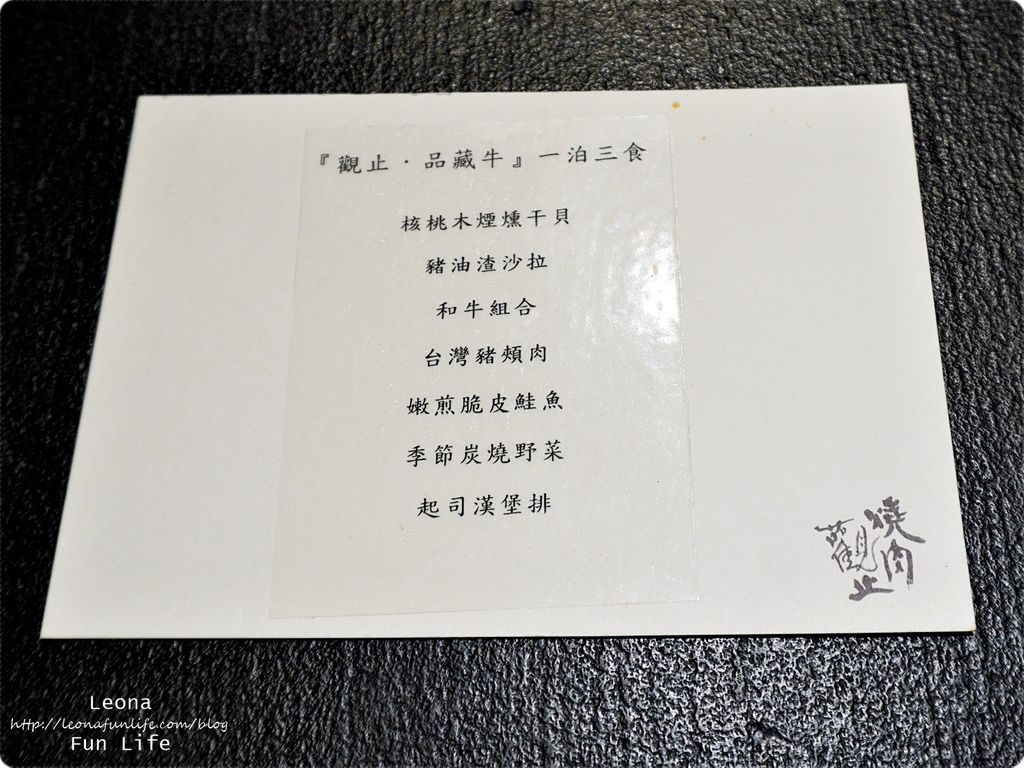 『觀止·品藏牛』一泊三食
核桃木煙燻干貝
豬油渣沙拉
和牛組合
台灣豬頰肉
嫩煎脆皮鮭魚
季節炭燒野菜
起司漢堡排
燒肉
觀止
Leona
http://leonafunlife.com/blog
Fun Life